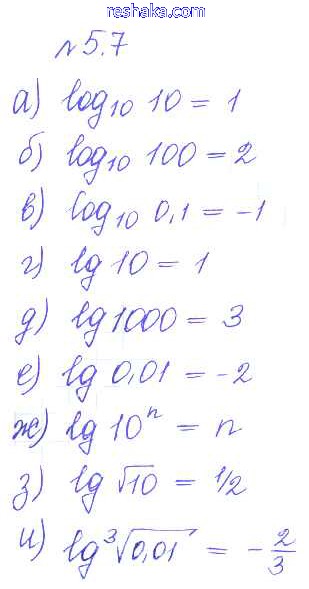 reshaka.com
№5.7
а) log₁₀ 10 = 1
б) log₁₀ 100 = 2
в) log₁₀ 0,1 = -1
г) lg 10 = 1
д) lg 1000 = 3
е) lg 0,01 = -2
ж) lg 10ⁿ = n
з) lg √10 = 1/2
и) lg ³√0,01 = -2/3